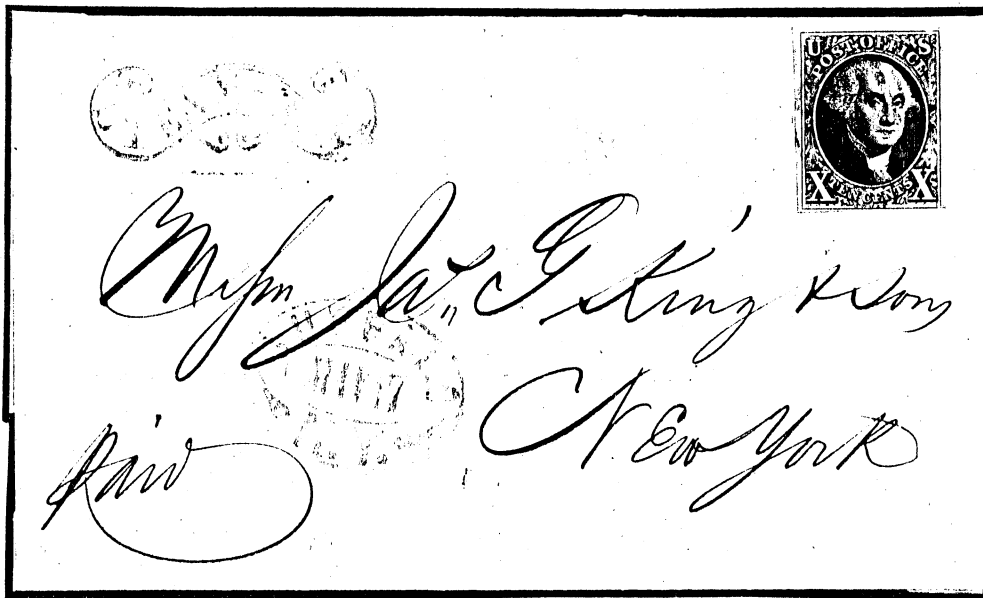 U S
POST OFFICE
X TEN CENTS X
Messrs Jas. G King & Sons
New York
Paid